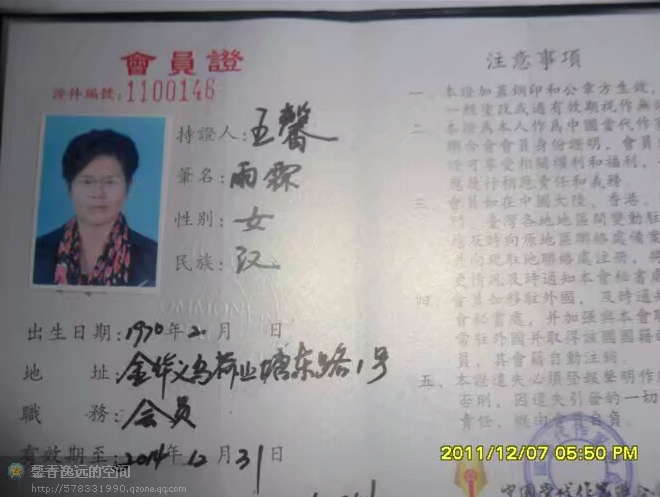 會員證
證件編號：1100146
持證人：王馨
筆名：雨霖
性别：女
民族：汉
出生日期：1970年2月 日
地 址：金华义乌荷山塘东路1号
職 務：会员
有效期至：2014年12月31日
注意事項
一、本證加蓋鋼印和公章方生效，
一經塗改或過有效期視作無
二、本證爲本人作爲中國當代作
聯合會會員身份證明，會員
證可享受相關權利和福利，
應履行相應責任和義務。
三、會員如在中國大陸、香港、
門、臺灣各地地區間變動駐
應及時向原地區聯絡處備案
并向現駐地聯絡處注册，
更情况及時通知本會秘書處
四、會員如移駐外國，及時通知
會秘書處，并加强與本會聯
常駐外國并取得該國國籍的
員，其會籍自動注銷。
五、本證遺失必須登報聲明作
否則，因遺失引發的一切
責任，概由會員自負。
中國當代作家聯合
2011/12/07 05:50 PM
馨香逸远的空间
http://578331990.qzone.qq.com